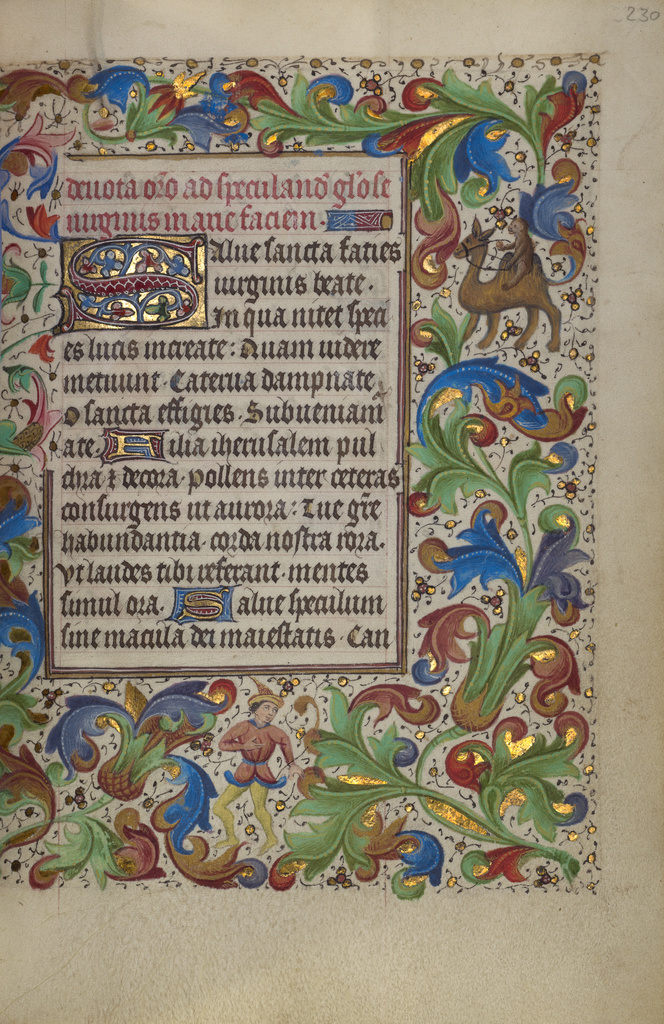 230
deuota oro ad speculand gl'ose
uirginis marie faciem.
Salue sancta facies
uirginis beate.
In qua nitet speci
es lucis increate: Quam uidere
metuunt. Caterua dampnate
o sancta effigies. Subueniam
ate. Filia iherusalem pul
chra ⁊ decora. pollens inter ceteras
consurgens ut aurora: Tue gr̄e
habundantia. corda nostra rora.
Vt laudes tibi referant. mentes
simul ora. Salue speculum
sine macula dei maiestatis. Can